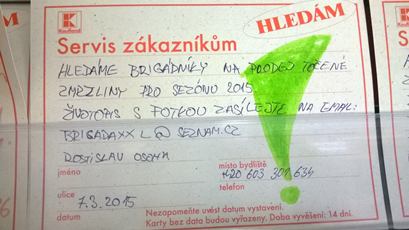 Kaufland
HLEDÁM
Servis zákazníkům
HLEDÁME BRIGÁDNÍKY NA PRODEJ TOČENÉ
ZMRZLINY PRO SEZÓNU 2015
ŽIVOTOPIS S FOTKOU ZASÍLEJTE NA EMAIL:
BRIGADAXXL@SEZNAM.CZ
ROSTISLAV
jméno
místo bydliště
+420 603 301 634
telefon
ulice
7.3.2015
datum
Nezapomeňte uvést datum vystavení.
Karty bez data budou vyřazeny. Doba vyvěšení: 14 dní.